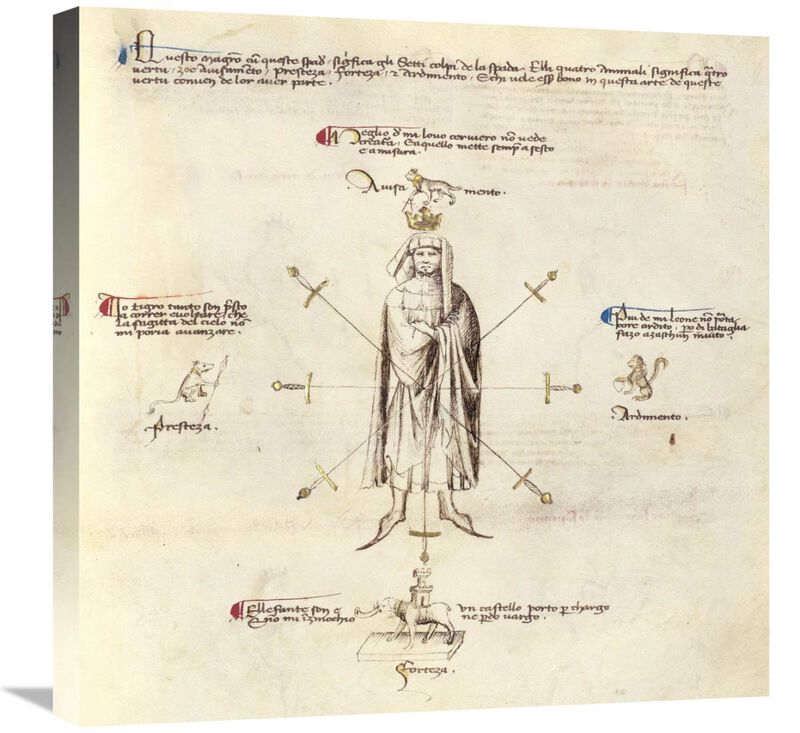 Questo magrõ cũ queste spad, sigfica gli Setti colpi de la spada. Elli quatro Animali significa qtro
vertu, zoe Avisamento, Presteza, Forteza, z Ardimento, E chi vole esse bono in questa arte de queste
vertu conven de lor aver parte.
Meglio d mi lovo cerviero no vede
creatura, E aquello mette semp a sesto
e a misura.
Avisa mento.
Io tigro tanto son psto
a correr e voltare, che
la sagitta del cielo non
mi poria avanzare.
Presteza.
Piu de mi leone no porta
core ardito, po di bataglia
fazo a zaschun invito.
Ardimento.
Ellefante son e un castello porto p chargo
E no mi inzinochio ne pdo vargo.
Forteza.